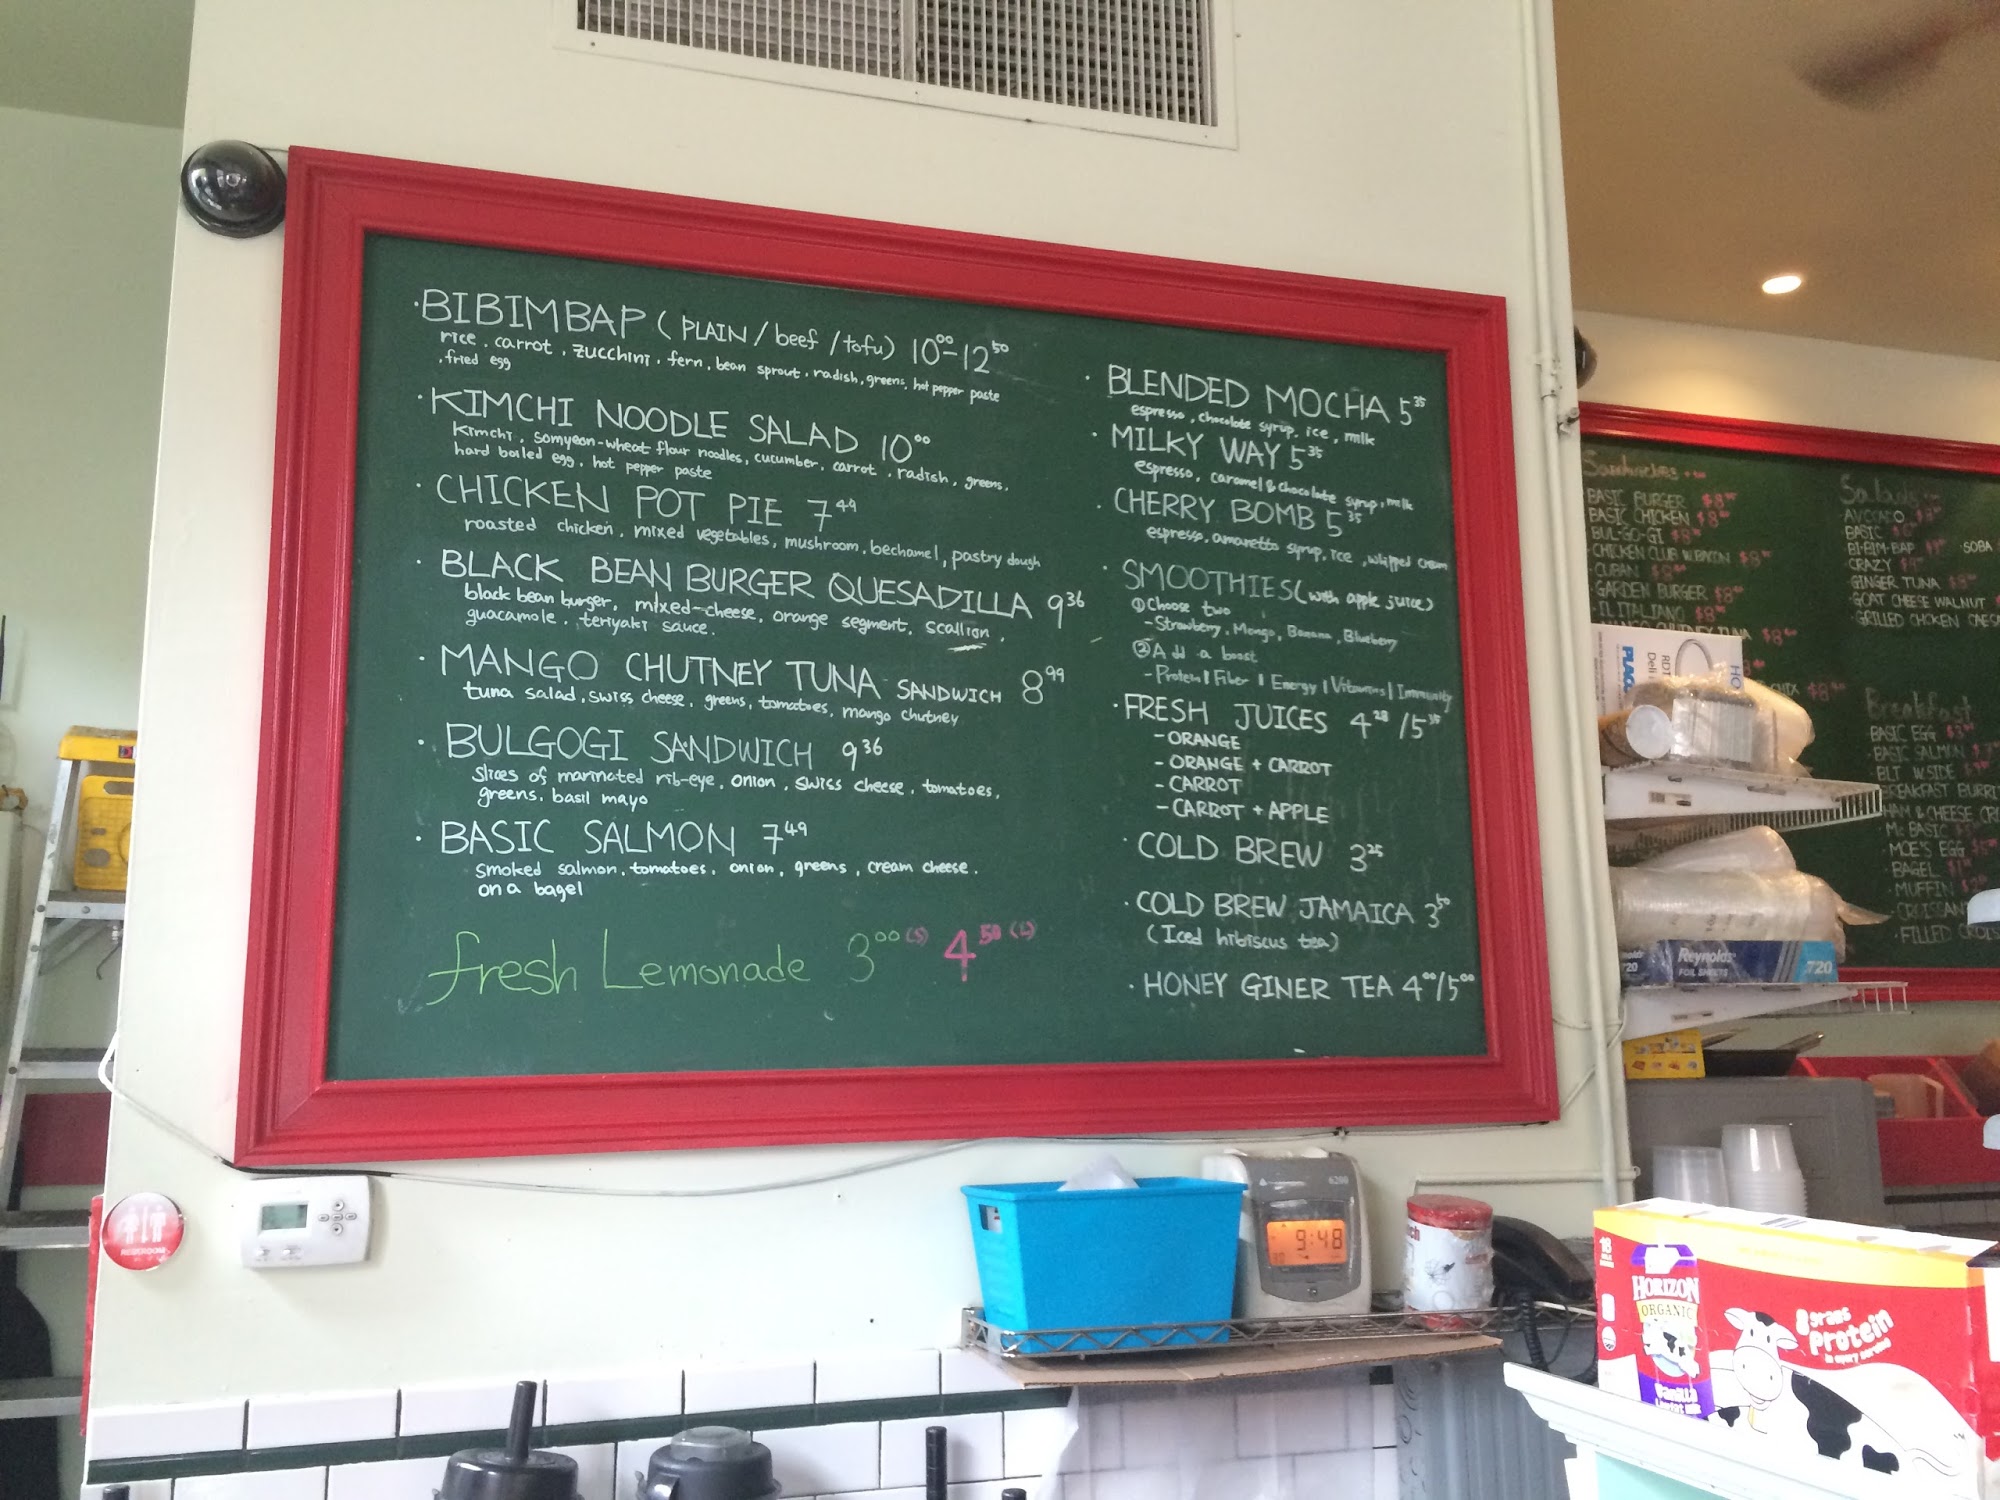 ·BIBIMBAP (PLAIN / beef / tofu) 10⁰⁰-12⁵⁰
rice. carrot. zucchini. fern, bean sprout. radish, greens, hot pepper paste
.fried egg
·KIMCHI NOODLE SALAD 10⁰⁰
Kimchi. somyeon-wheat flour noodles, cucumber. carrot. radish, greens.
hard boiled egg. hot pepper paste
·CHICKEN POT PIE 7⁴⁹
roasted chicken, mixed vegetables, mushroom, bechamel, pastry dough
·BLACK BEAN BURGER QUESADILLA 9³⁶
black bean burger, mixed-cheese, orange segment, scallion,
guacamole. teriyaki sauce.
·MANGO CHUTNEY TUNA SANDWICH 8⁹⁹
tuna salad, swiss cheese, greens, tomatoes, mango chutney
·BULGOGI SANDWICH 9³⁶
slices of marinated rib-eye, onion, swiss cheese, tomatoes,
greens. basil mayo
·BASIC SALMON 7⁴⁹
smoked salmon, tomatoes, onion, greens, cream cheese.
on a bagel
fresh Lemonade 3⁰⁰(S) 4⁵⁰(L)
·BLENDED MOCHA 5³⁵
espresso, chocolate syrup, ice, milk
·MILKY WAY 5³⁵
espresso, caramel & chocolate syrup, milk
·CHERRY BOMB 5³⁵
espresso, amaretto syrup, ice, whipped cream
·SMOOTHIES (with apple juice)
①Choose two
-Strawberry, Mango, Banana, Blueberry
②Add a boost
-Protein | Fiber | Energy | Vitamins | Immunity
·FRESH JUICES 4²⁸/5³⁵
-ORANGE
-ORANGE + CARROT
-CARROT
-CARROT + APPLE
·COLD BREW 3²⁵
·COLD BREW JAMAICA 3⁵⁰
(Iced hibiscus tea)
·HONEY GINER TEA 4⁰⁰/5⁰⁰
Sandwiches
BASIC BURGER $8
BASIC CHICKEN $8
BUL-GO-GI $8
·CHICKEN CLUB W.BACON $8
·CUBAN $8
·GARDEN BURGER $8
·IL ITALIANO $8
MANGO CHUTNEY TUNA $8
Salads
AVOCADO
BASIC
BI-BIM-BAP
·SOBA
CRAZY
GINGER TUNA $8
GOAT CHEESE WALNUT
·GRILLED CHICKEN CAESA
Breakfast
BASIC EGG
BASIC SALMON
BLT W.SIDE
BREAKFAST BURRI
HAM & CHEESE CR
Mc BASIC
MOE'S EGG
BAGEL
MUFFIN
CROISSAN
·FILLED CROIS
Reynolds
FOIL SHEETS
720
RESTROOM
6200
9:48
18
HORIZON
ORGANIC
vanilla
8 grams
Protein
in every serving